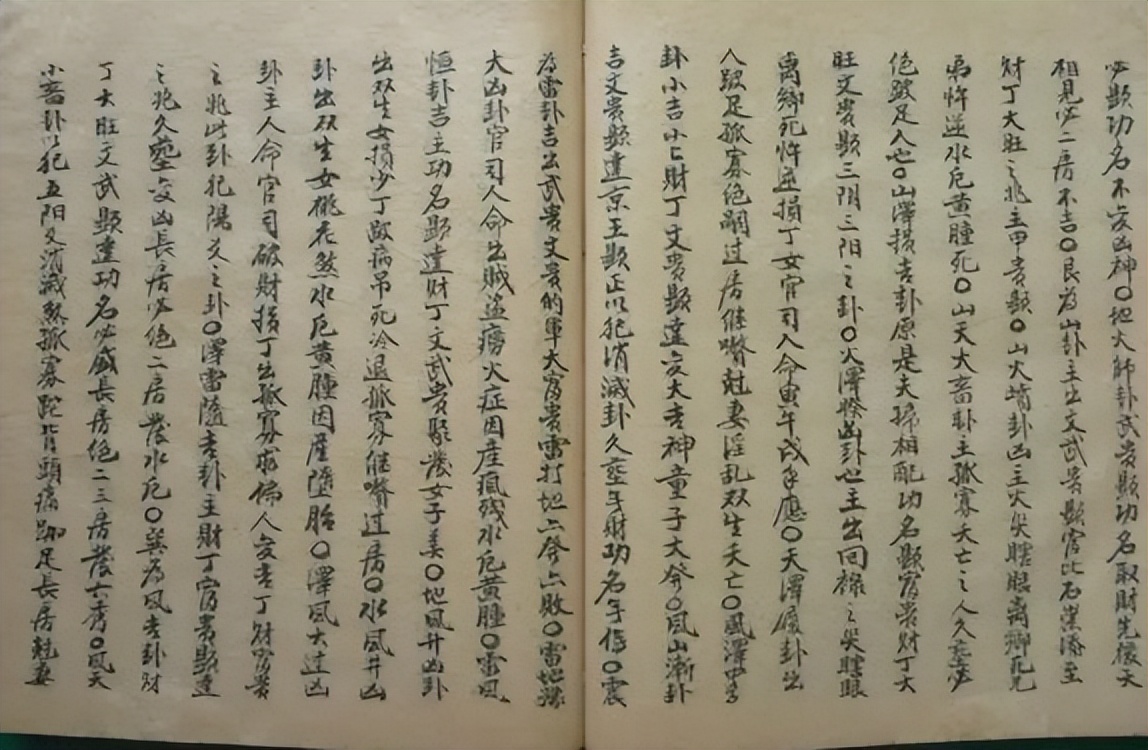 必顯功名不交凶神〇地火師卦武貴顯功名取財先後天
相見必二房不吉〇艮為山卦主出文武貴顯官比石崇添至
財丁大旺之兆主甲貴顯〇山火賁卦凶主火失瞎眼离鄉死兄
弟忤逆水厄黃腫死〇山天大畜卦主孤寡夭亡之人久運必
絕跛足人也〇山澤損吉卦原是夫婦相配功名顯富貴財丁大
旺文貴顯三阴三陽之卦〇火澤睽凶卦也主出回祿之失瞎眼
离鄉死忤逆損丁女官司人命寅午戌年應〇天澤履卦出
人跛足孤寡绝嗣过房继贅尅妻淫乱双生夭亡〇風澤中孚
卦小吉小亡財丁文貴顯達交大吉神童子大發〇風山漸卦
吉文貴顯達京王顯正以犯消滅卦久運年財功名年傷〇震
為雷卦吉出武貴文貴的軍大富貴雷打地六發六敗〇雷地豫
大凶卦官司人命出贼盗痨火症因產瘋残水厄黃腫〇雷風
恒卦吉主功名顯達財丁文武貴聚發女子美〇地風升凶卦
出双生女損少丁跛病吊死冷退孤寡继贅过房〇水風井凶
卦出双生女桃花煞水厄黃腫因產墮胎〇澤風大过凶
卦主人命官司破財損丁出孤寡求偏人交吉丁財富貴
之兆此卦犯陽爻之卦〇澤雷隨吉卦主財丁富貴顯達
之兆久運交凶長房必绝二房發水厄〇巽為風吉卦財
丁大旺文武顯達功名必盛長房绝二三房發六秀〇風天
小畜卦以犯五阳又消滅煞孤寡駝背頭痛跏足長房尅妻